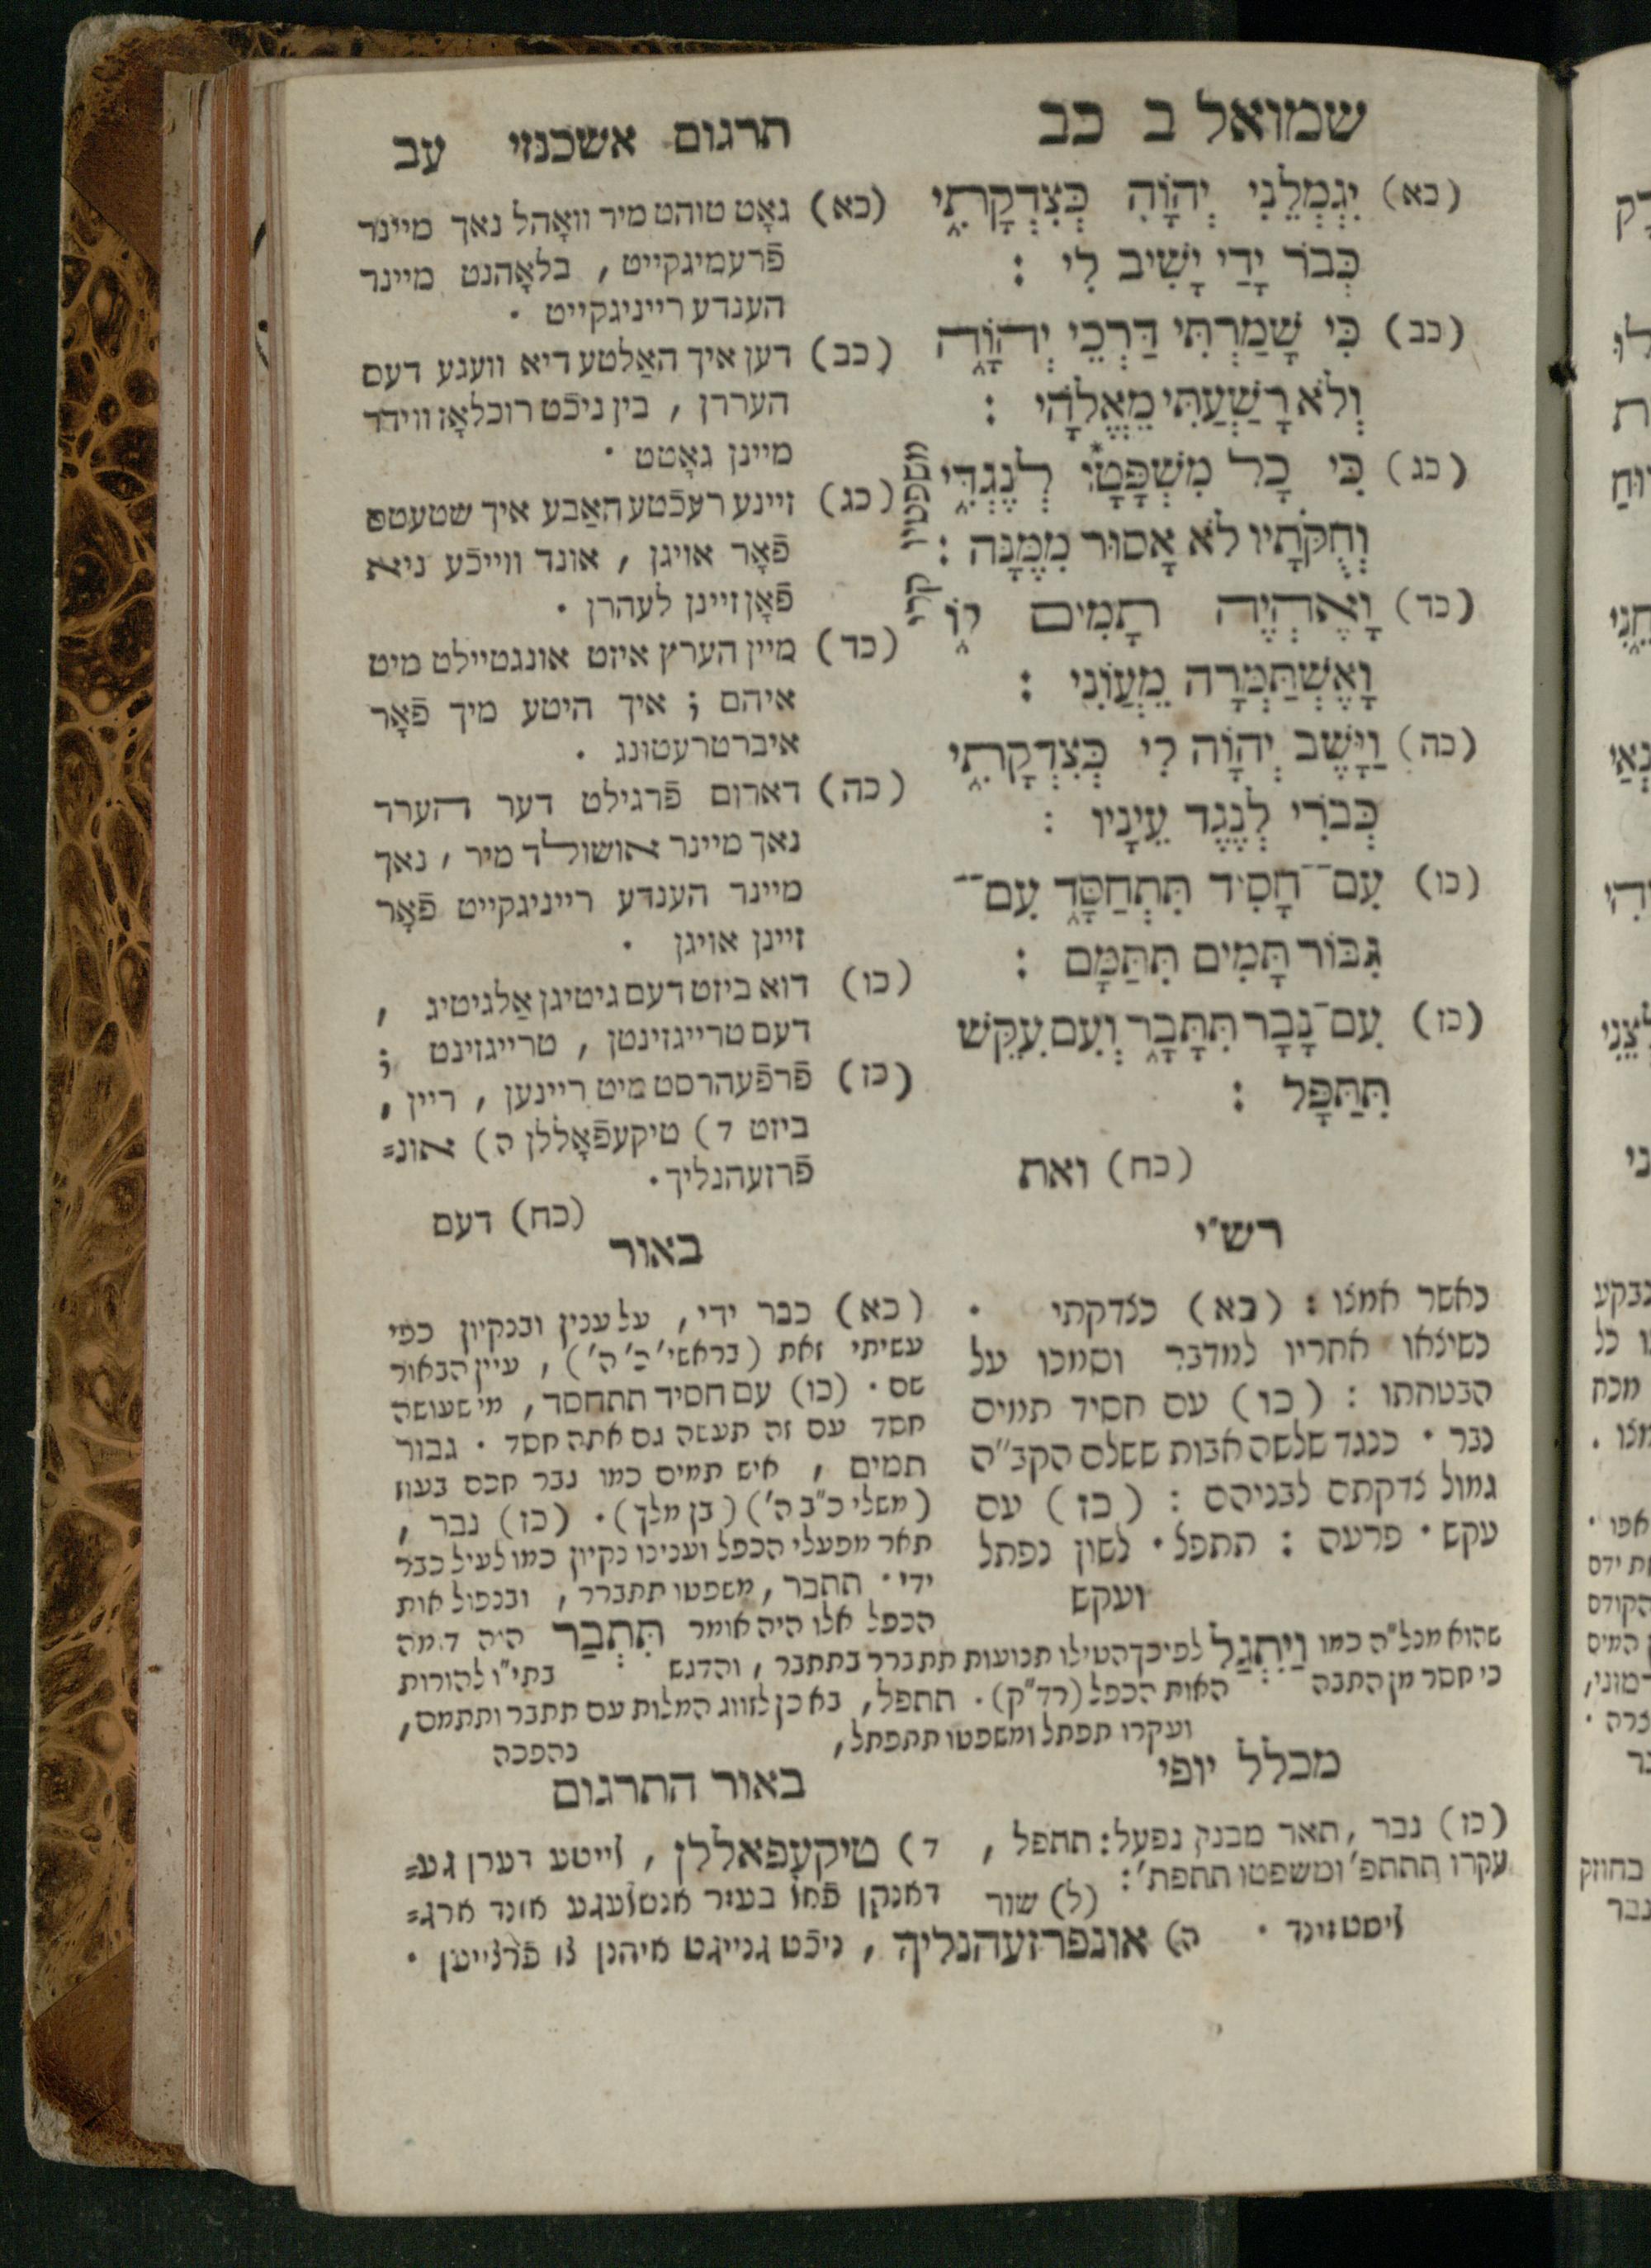 שמואל ב כב
תרגום אשכנזי עב
(כא) יִגְמְלֵנִי יְהוָֹה כְּצִדְקָתִי
כְּבֹר יָדַי יָשִׁיב לִי :
(כב) כִּי שָׁמַרְתִּי דַּרְכֵי יְהוָֹה
וְלֹא רָשַׁעְתִּי מֵאֱלֹהָי :
(כג) כִּי כָל מִשְׁפָּטָו* לְנֶגְדִּי
וְחֻקֹּתָיו לֹא אָסוּר מִמֶּנָּה :
משפטיו קרי
(כד) וָאֶהְיֶה תָמִים לוֹ
וָאֶשְׁתַּמְּרָה מֵעֲוֹנִי :
(כה) וַיָּשֶׁב יְהוָֹה לִי כְּצִדְקָתִי
כְּבֹרִי לְנֶגֶד עֵינָיו :
(כו) עִם־חָסִיד תִּתְחַסָּד עִם־
גִּבּוֹר תָּמִים תִּתַּמָּם :
(כז) עִם־נָבָר תִּתָּבָר וְעִם עִקֵּשׁ
תִּתַּפָּל :
(כח) ואת
(כא) גאָט טוהט מיר וואָהל נאך מיינר
פֿרעמיגקייט , בלאָהנט מיינר
הענדע רייניגקייט .
(כב) דען איך האַלטע דיא וועגע דעם
העררן , בין ניכֿט רוכלאָז ווידר
מיינן גאָטט .
(כג) זיינע רעכֿטע האַבע איך שטעטס
פֿאָר אויגן , אונד ווייכֿע ניא
פֿאָן זיינן לעהרן .
(כד) מיין הערץ איזט אונגטיילט מיט
איהם ; איך היטע מיך פֿאָר
איברטרעטונג .
(כה) דארום פֿרגילט דער הערר
נאך מיינר אושולד מיר , נאך
מיינר הענדע רייניגקייט פֿאָר
זיינן אויגן .
(כו) דוא ביזט דעם גיטיגן אַלגיטיג ,
דעם טרייגזינטן , טרייגזינט ;
(כז) פֿרפֿעהרסט מיט ריינען , ריין ,
ביזט ד) טיקעפֿאָללן ה) אונ=
פֿרזעהנליך.
(כח) דעם
רש"י
כאשר אמצו : (כא) כצדקתי .
כשיצאו אחריו למדבר וסמכו על
הבטחתו : (כו) עם חסיד תמים
נבר . כנגד שלשה אבות ששלם הקב"ה
גמול צדקתם לבניהם : (כז) עם
עקש . פרעה : תתפל . לשון נפתל
ועקש
באור
(כא) כבר ידי , על ענין ובנקיון כפי
עשיתי זאת (בראשי' כ' ה') , עיין הבאור
שם . (כו) עם חסיד תתחסד , מי שעושה
חסד עם זה תעשה גם אתה חסד . גבור
תמים , איש תמים כמו גבר חכם בעוז
(משלי כ"ב ה') (בן מלך). (כז) נבר ,
תאר מפעלי הכפל וענינו נקיון כמו לעיל כבר
ידי . תתבר , משפטו תתברר , ובנפול אות
הכפל אלו היה אומר תִּתְבַר היה דומה
שהוא מנל"ה כמו וַיִּתְגַל לפיכך הטילו תנועות תתברר בתתבר , והדגש בתי"ו להורות
כי חסר מן התבה האות הכפל (רד"ק). תתפל, בא כן לזווג המלות עם תתבר ותתמם,
ועקרו תפתל ומשפטו תתפתל,
נהפכה
מכלל יופי
(כז) נבר , תאר מבנין נפעל: תתפל ,
עקרו תתתפ' ומשפטו תתפת':
(ל) שור
באור התרגום
ד) טיקעפֿאללן , לייטע דערן גע=
דאנקן פֿאָל בעזר אנשלעגע אונד ארג=
ליסט זינד . ה) אונפרזעהנליך , ניכֿט גנייגט איהנן צו פֿרצייען .